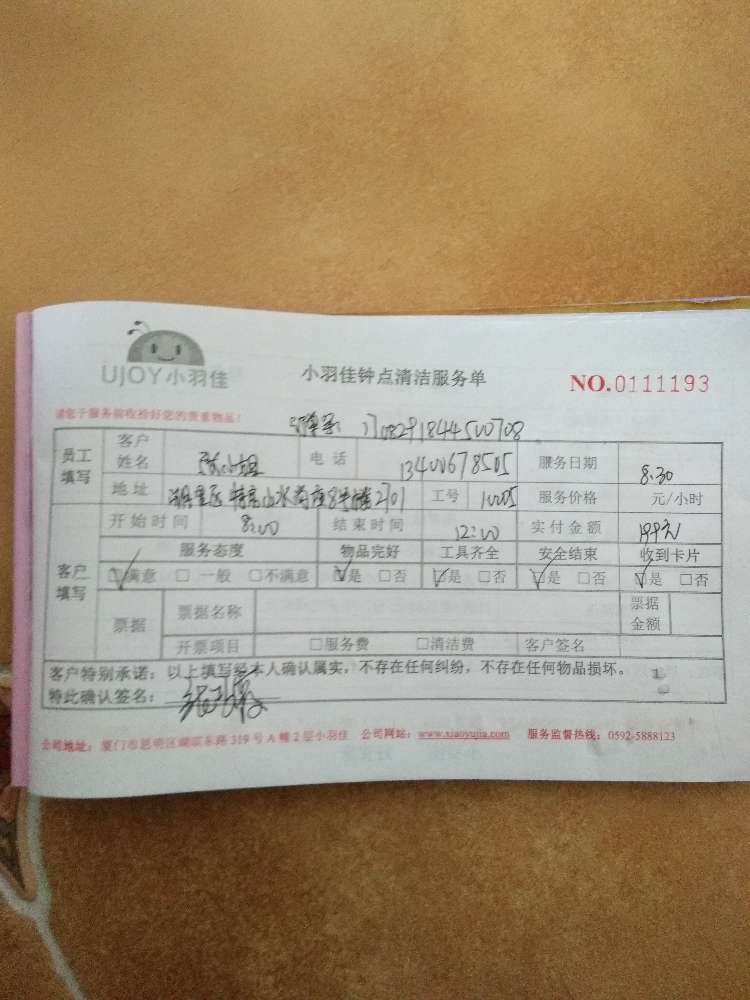 UJOY小羽佳
小羽佳钟点清洁服务单
NO.0111193
请您于服务前收捡好您的贵重物品!
170829184450708
员工填写 客户姓名 小姐 电话 13400678505 服务日期 8.30
地址 湖里区 水尚座8号楼2701 工号 1005 服务价格 元/小时
开始时间 8:00 结束时间 12:00 实付金额 199元
客户填写 服务态度 物品完好 工具齐全 安全结束 收到卡片
☑满意 □一般 □不满意 ☑是 □否 ☑是 □否 ☑是 □否 ☑是 □否
票据 票据名称 票据金额
开票项目 □服务费 □清洁费 客户签名
客户特别承诺:以上填写经本人确认属实,不存在任何纠纷,不存在任何物品损坏。
特此确认签名:
公司地址:厦门市思明区湖滨东路319号A幢2层小羽佳 公司网站:www.xiaoyujia.com 服务监督热线:0592-5888123